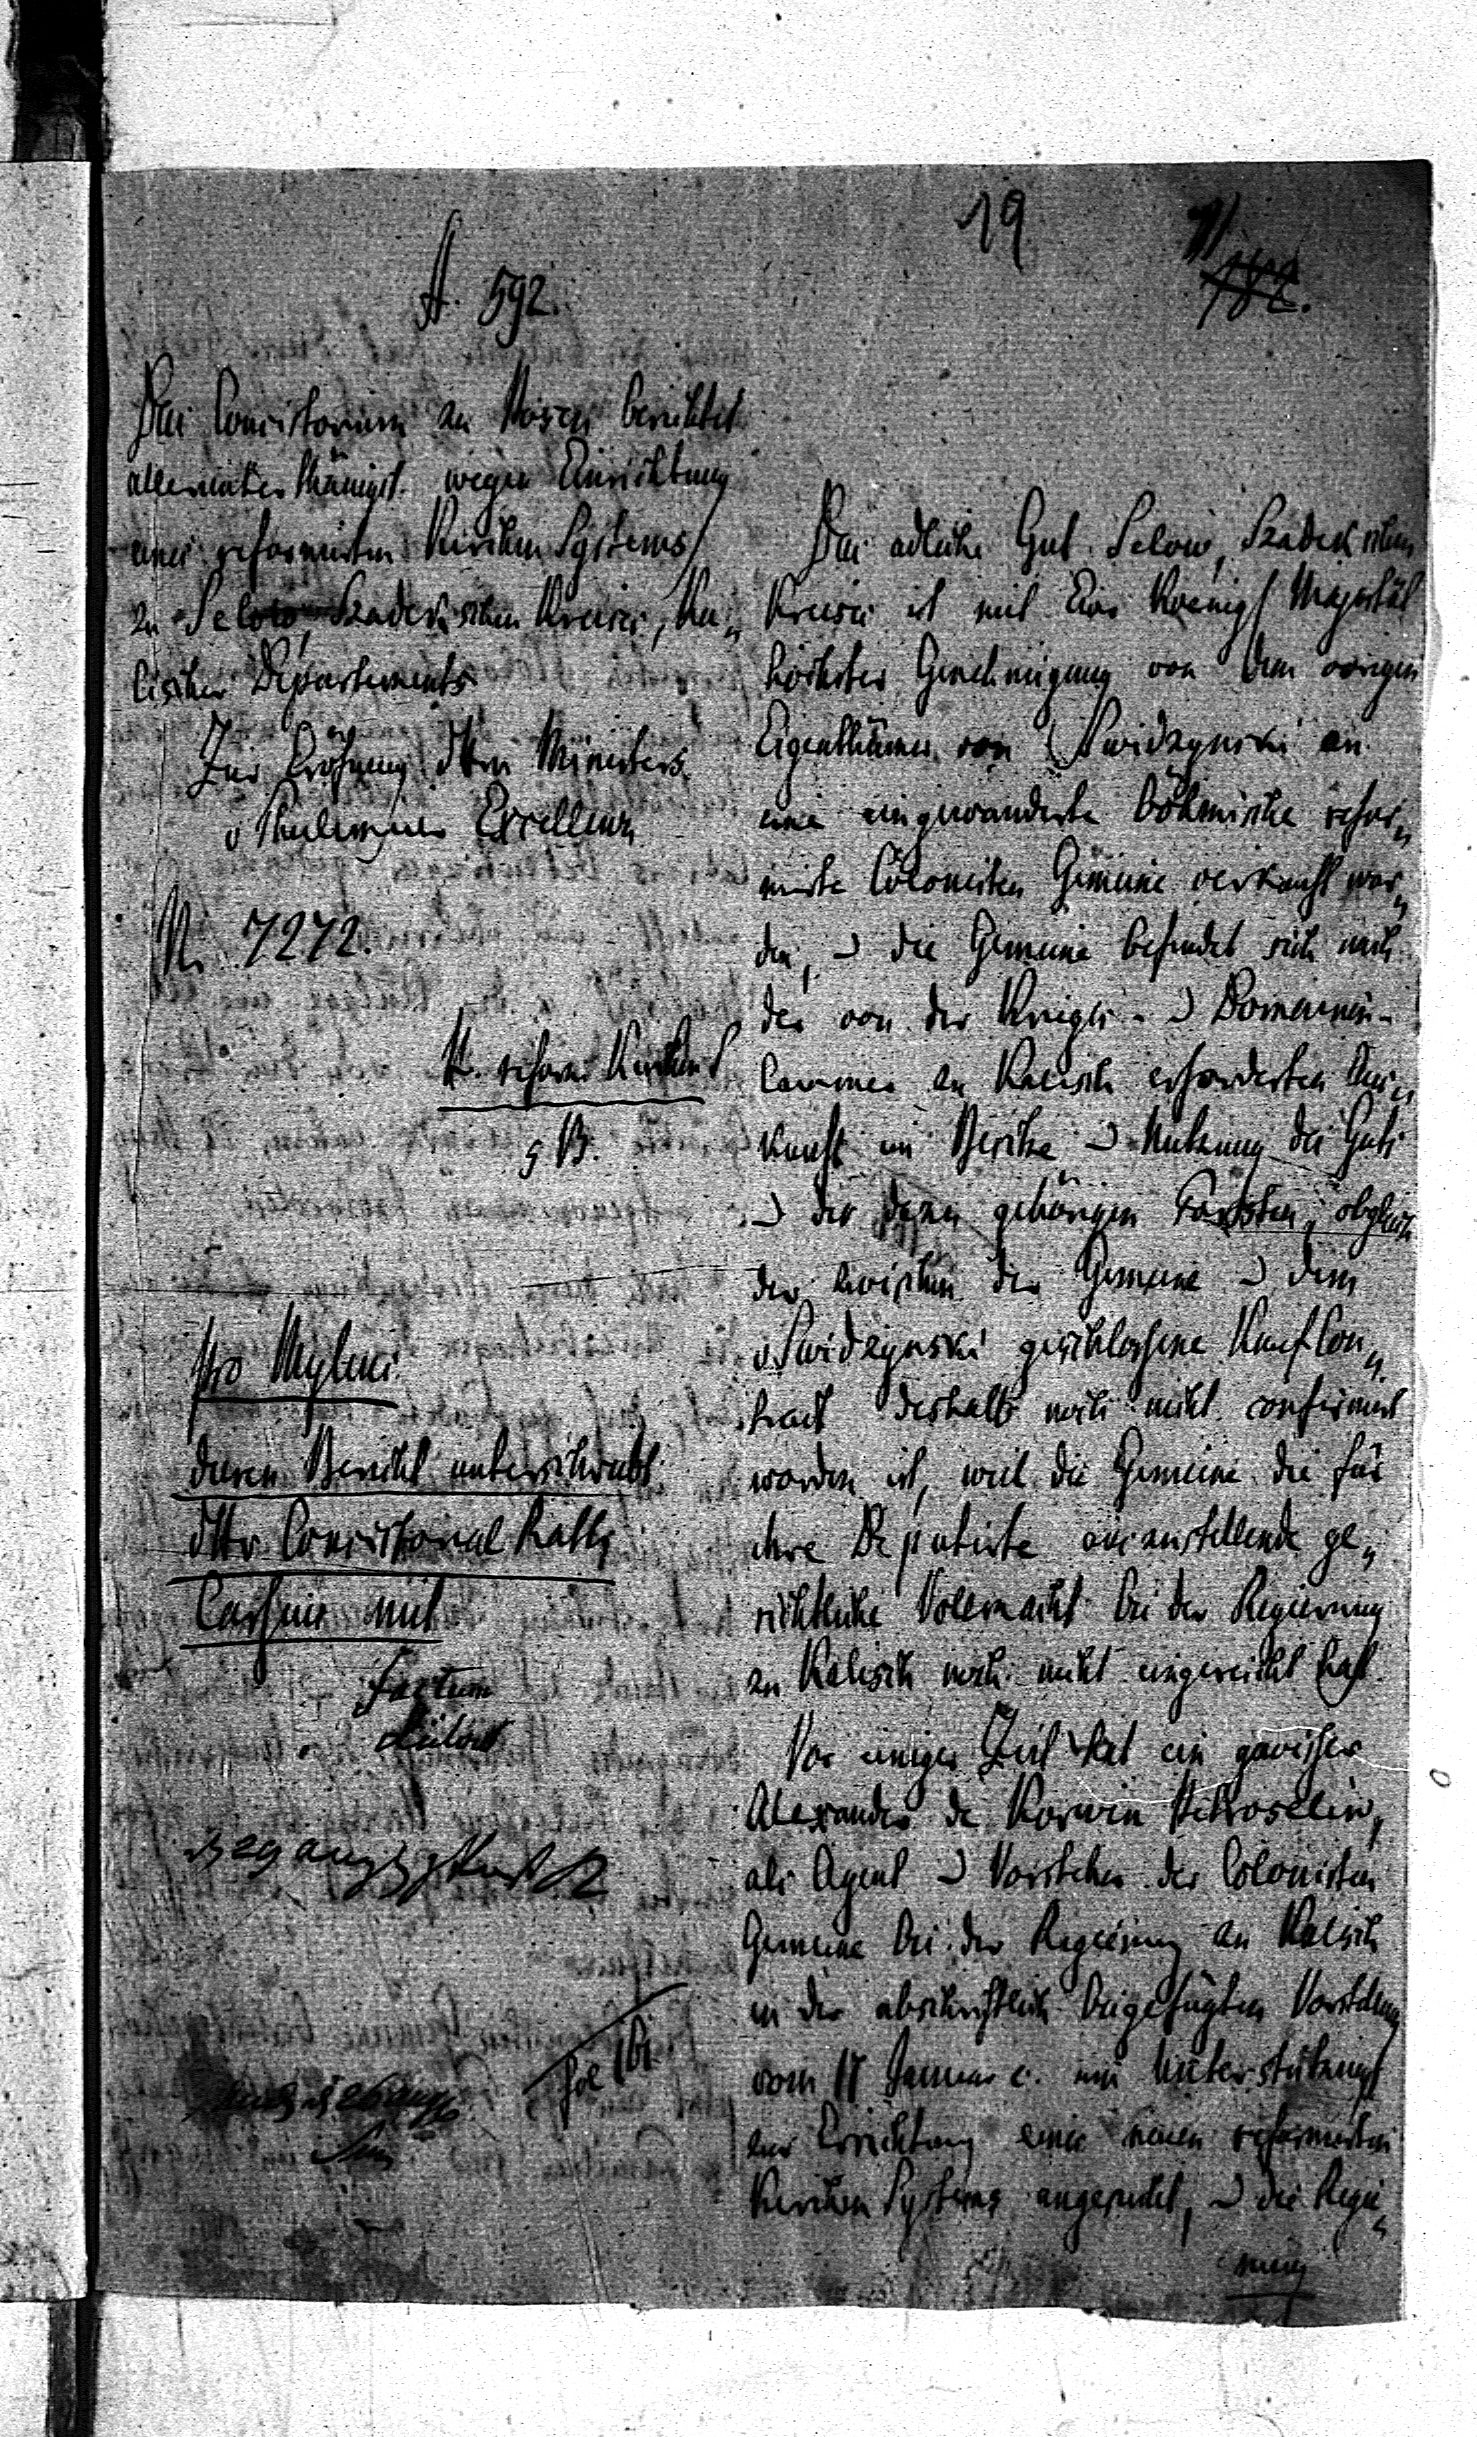 19
A. 592.
Das Consistorium zu Posen berichtet
allerunterthänigst wegen Einrichtung
eines reformirten Kirchen Systems
zu Selow, Szadekschen Kreises, Ka„
lischer Departements
Zur Eröfnung des Herrn Ministers
v Thulemeier Excellenz
N. 7272.
reform Kirchen
g B.
pro Mylius
diesen Bericht unterschreibt
Herr Consistorial Rath
Cassius mit
Das adliche Gut Selow, Szadekschen
Kreises ist mit Eur Koenigl Majestät
höchster Genehmigung von dem vorigen
Eigenthümer von Swidzynski an
eine eingewanderte böhmische refor„
mirte Colonisten Gemeine verkauft wor„
den, und die Gemeine befindet sich nach
der von der Krieges- und Domainen-
Cammer zu Kalisch erforderten Aus„
kunft im Besitze und Nutzung des Guts
und der dazu gehörigen Forsten, obgleich
der zwischen der Gemeine und dem
v Swidzynski geschlossene Kauf Con„
tract deshalb noch nicht confirmirt
worden ist, weil die Gemeine die für
ihre Deputirte auszustellende ge„
richtliche Vollmacht bei der Regierung
zu Kalisch noch nicht eingereicht hat.
Vor einiger Zeit hat ein gewisser
Alexander de Korwin Petroselin,
als Agent und Vorsteher der Colonisten
Gemeine bei der Regierung zu Kalisch
in der abschriftlich beigefügten Vorstellung
vom 17 Januar c. um Unterstützung
zur Errichtung eines neuen reformirten
Kirchen Systems angesucht, und die Regie„
rung